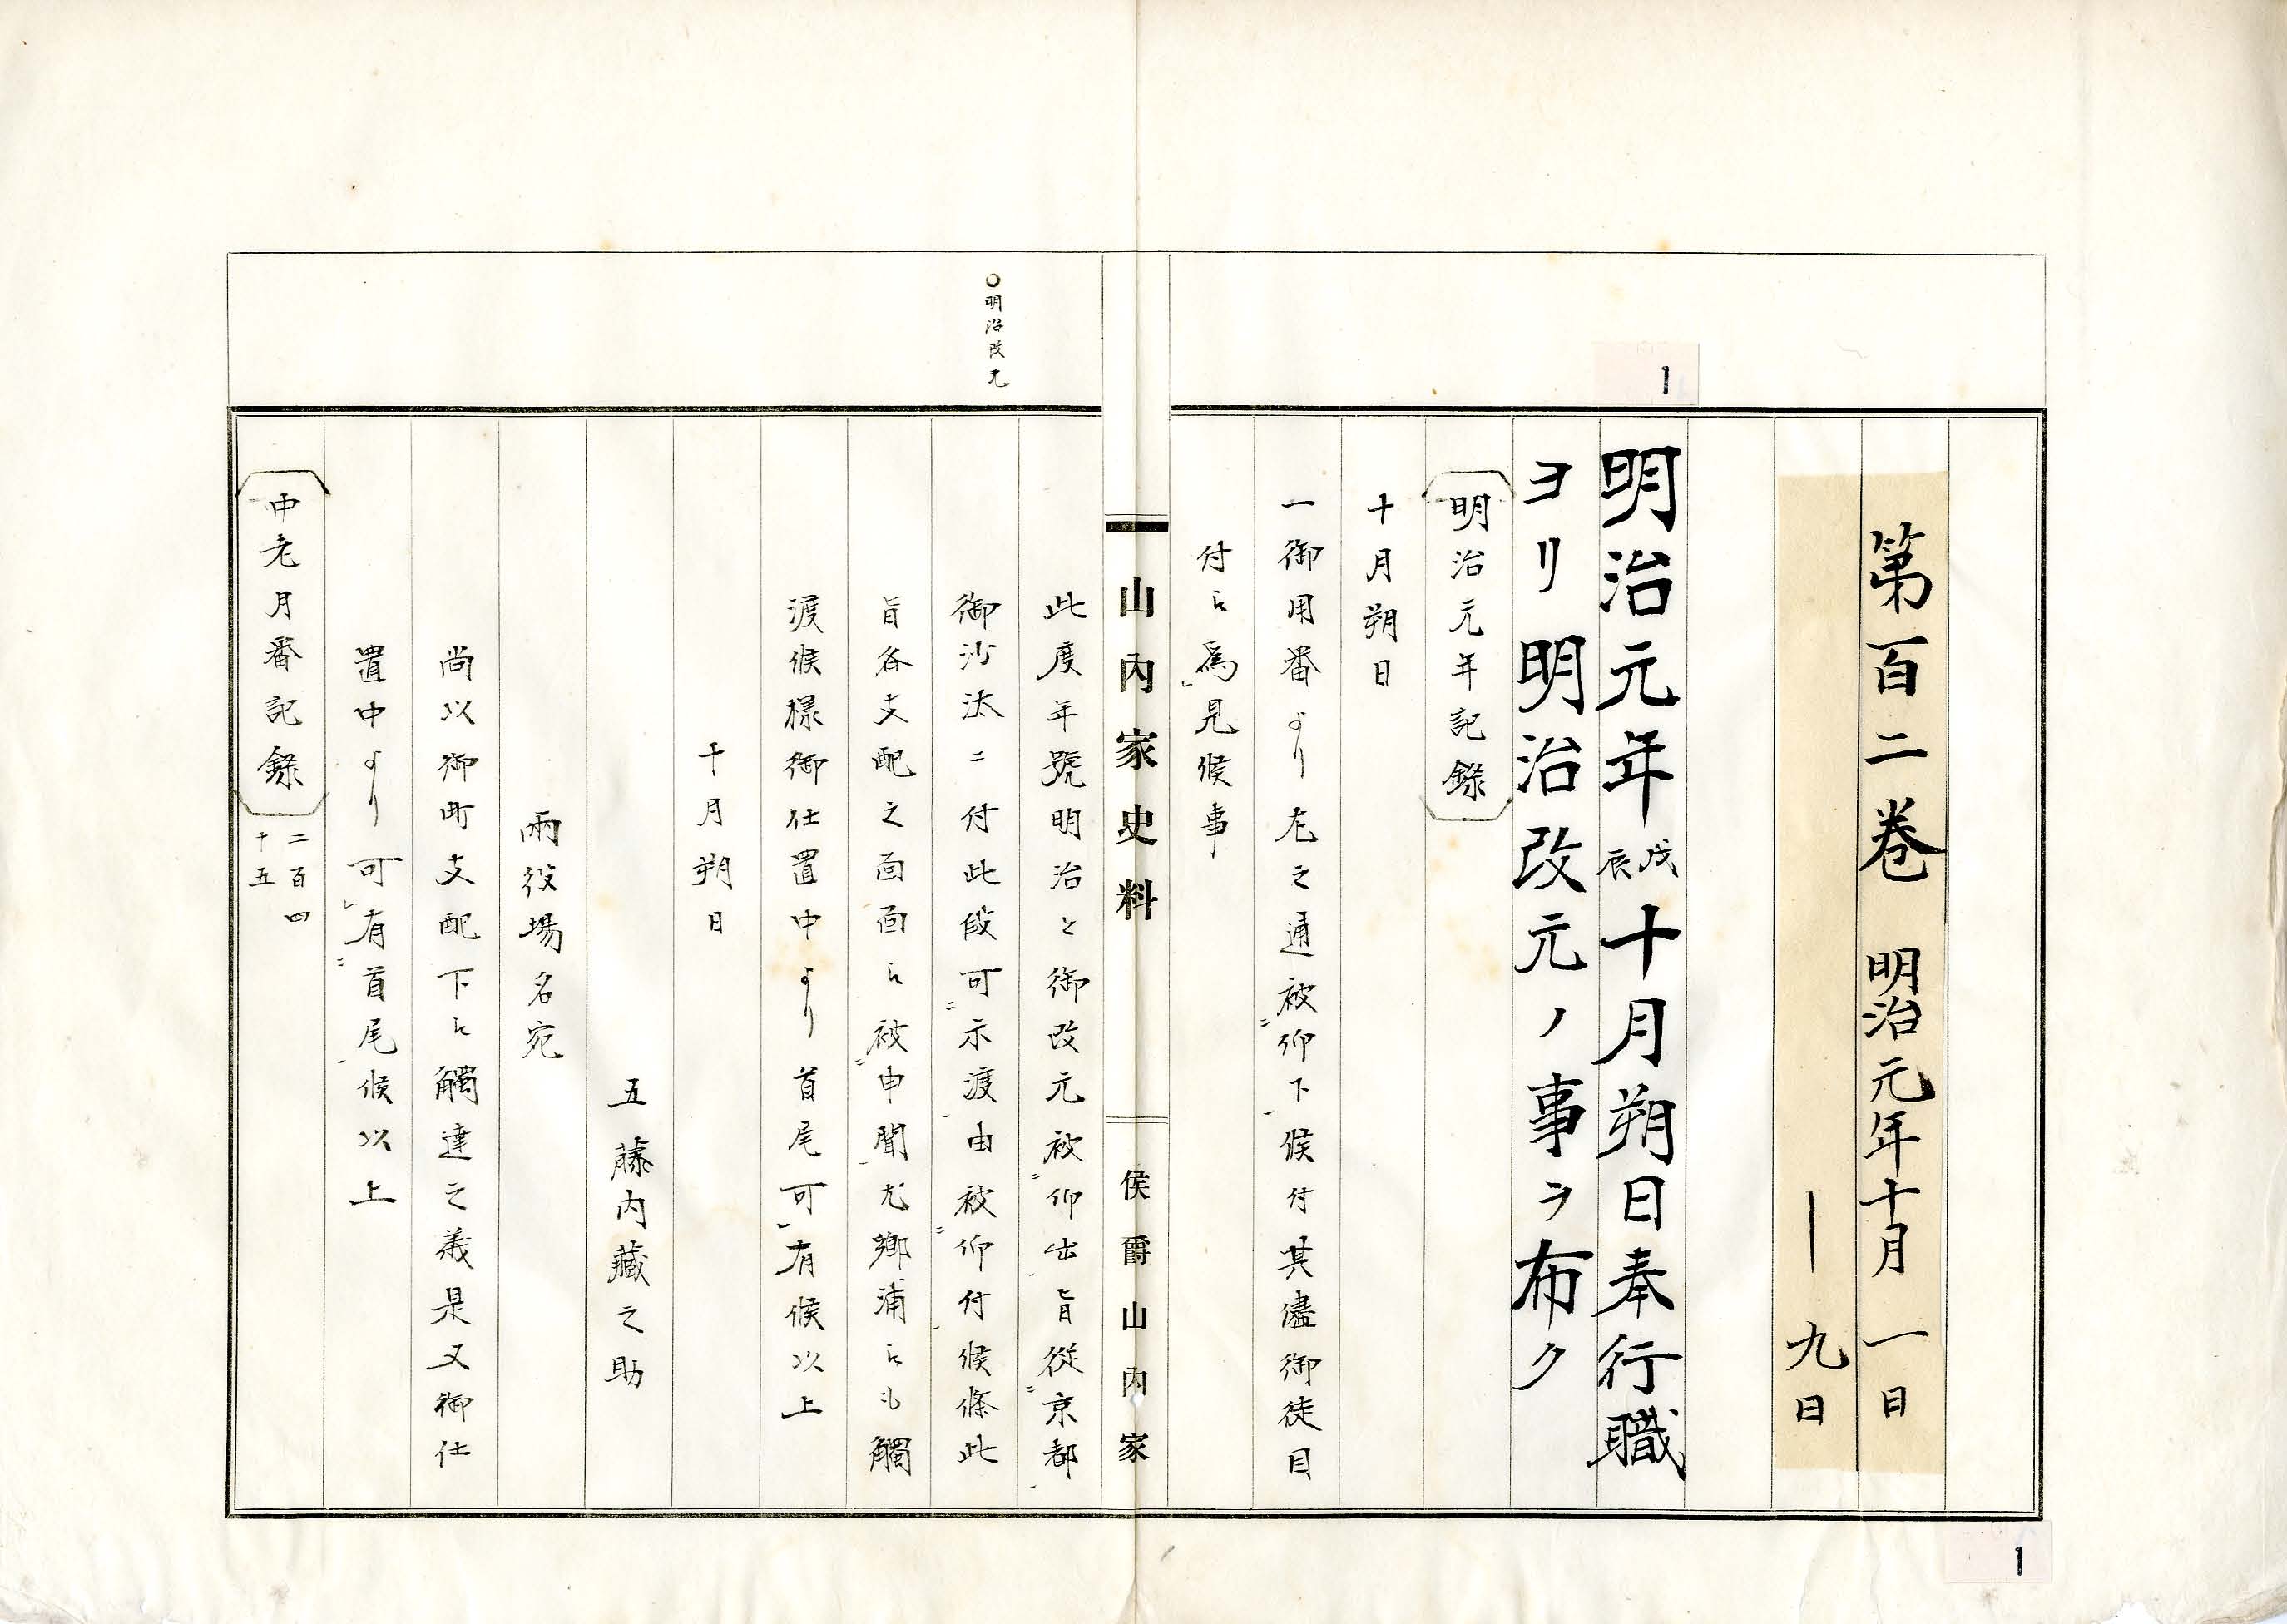 第百二卷　明治元年十月　一日
―九日
1
明治元年戊辰十月朔日奉行職
ヨリ明治改元ノ事ヲ布ク
明治元年記錄
十月朔日
一御用番より左之通被仰下候付其儘御徒目
付ニ為見候事
山內家史料
侯爵山內家
○明治改元
此度年號明治と御改元被仰出旨從京都
御沙汰ニ付此段可示渡由被仰付候條此
旨各支配之面面ニ被申聞尤鄕浦ニも觸
渡候樣御仕置中より首尾可有候以上
十月朔日
五藤內藏之助
兩役場名宛
尚以御町支配下ニ觸達之義是又御仕
置中より可有首尾候以上
中老月番記錄　二百四十五
1